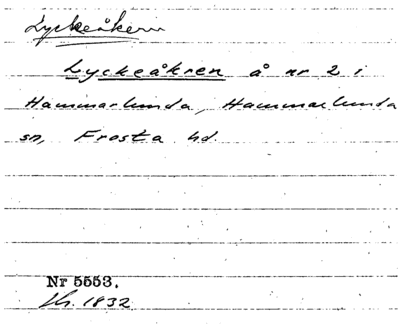 Lyckeåkern
Lyckeåkren å nr 2 i
Hammarlunda, Hammarlunda
sn, Frosta hd.
Nr 5553.
1832